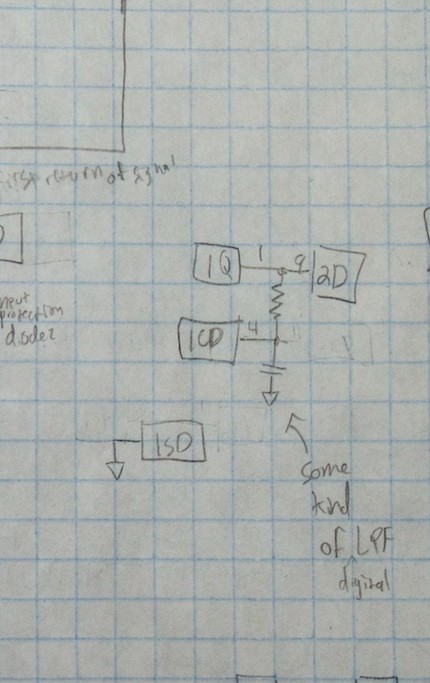 first return of signal
input
protection
diode?
1Q
1
9
2D
1CD
4
1SD
some
kind
of LPF
digital